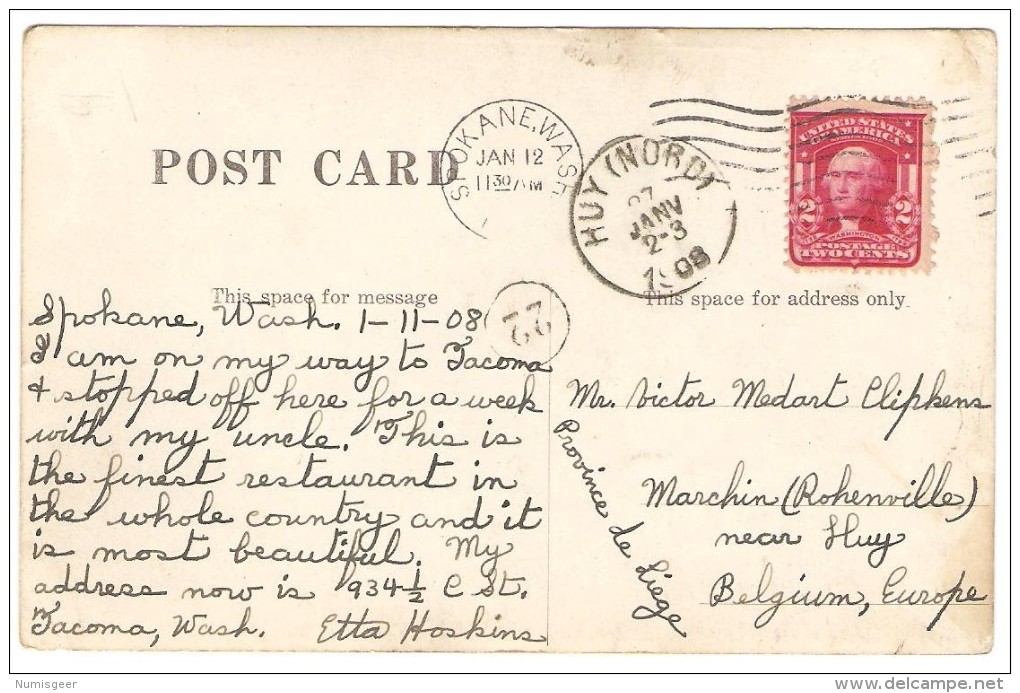 POST CARD
SPOKANE, WASH.
JAN 12
11 30 AM
HUY (NORD)
JANV
2-3
1908
UNITED STATES
OF AMERICA
2 2
WASHINGTON
POSTAGE
TWO CENTS
This space for message
This space for address only.
22
Spokane, Wash. 1-11-08
I am on my way to Tacoma
& stopped off here for a week
with my uncle. This is
the finest restaurant in
the whole country and it
is most beautiful. My
address now is 934½ C St.
Tacoma, Wash. Etta Hoskins
Mr. Victor Medart Clipkens
Marchin (Rohenville)
near Huy
Belgium, Europe
Province de Liége
Numisgeer
www.delcampe.net